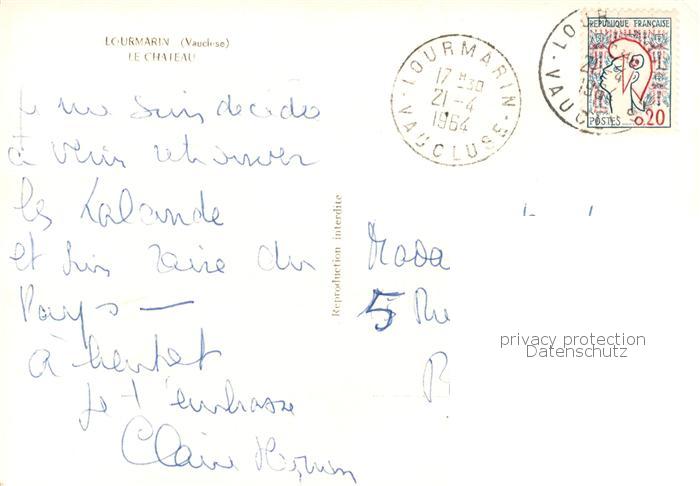 LOURMARIN (Vaucluse)
LE CHATEAU
LOURMARIN
17 H 30
21-4
1964
VAUCLUSE
LOUR
VAUCLUSE
REPUBLIQUE FRANÇAISE
POSTES 0,20
Je me suis décidée
à venir retrouver
les Lalande
et suis ravie du
Pays —
à bientôt
Je t'embrasse
Claire
Reproduction interdite
Mada
5 Ru
privacy protection
Datenschutz